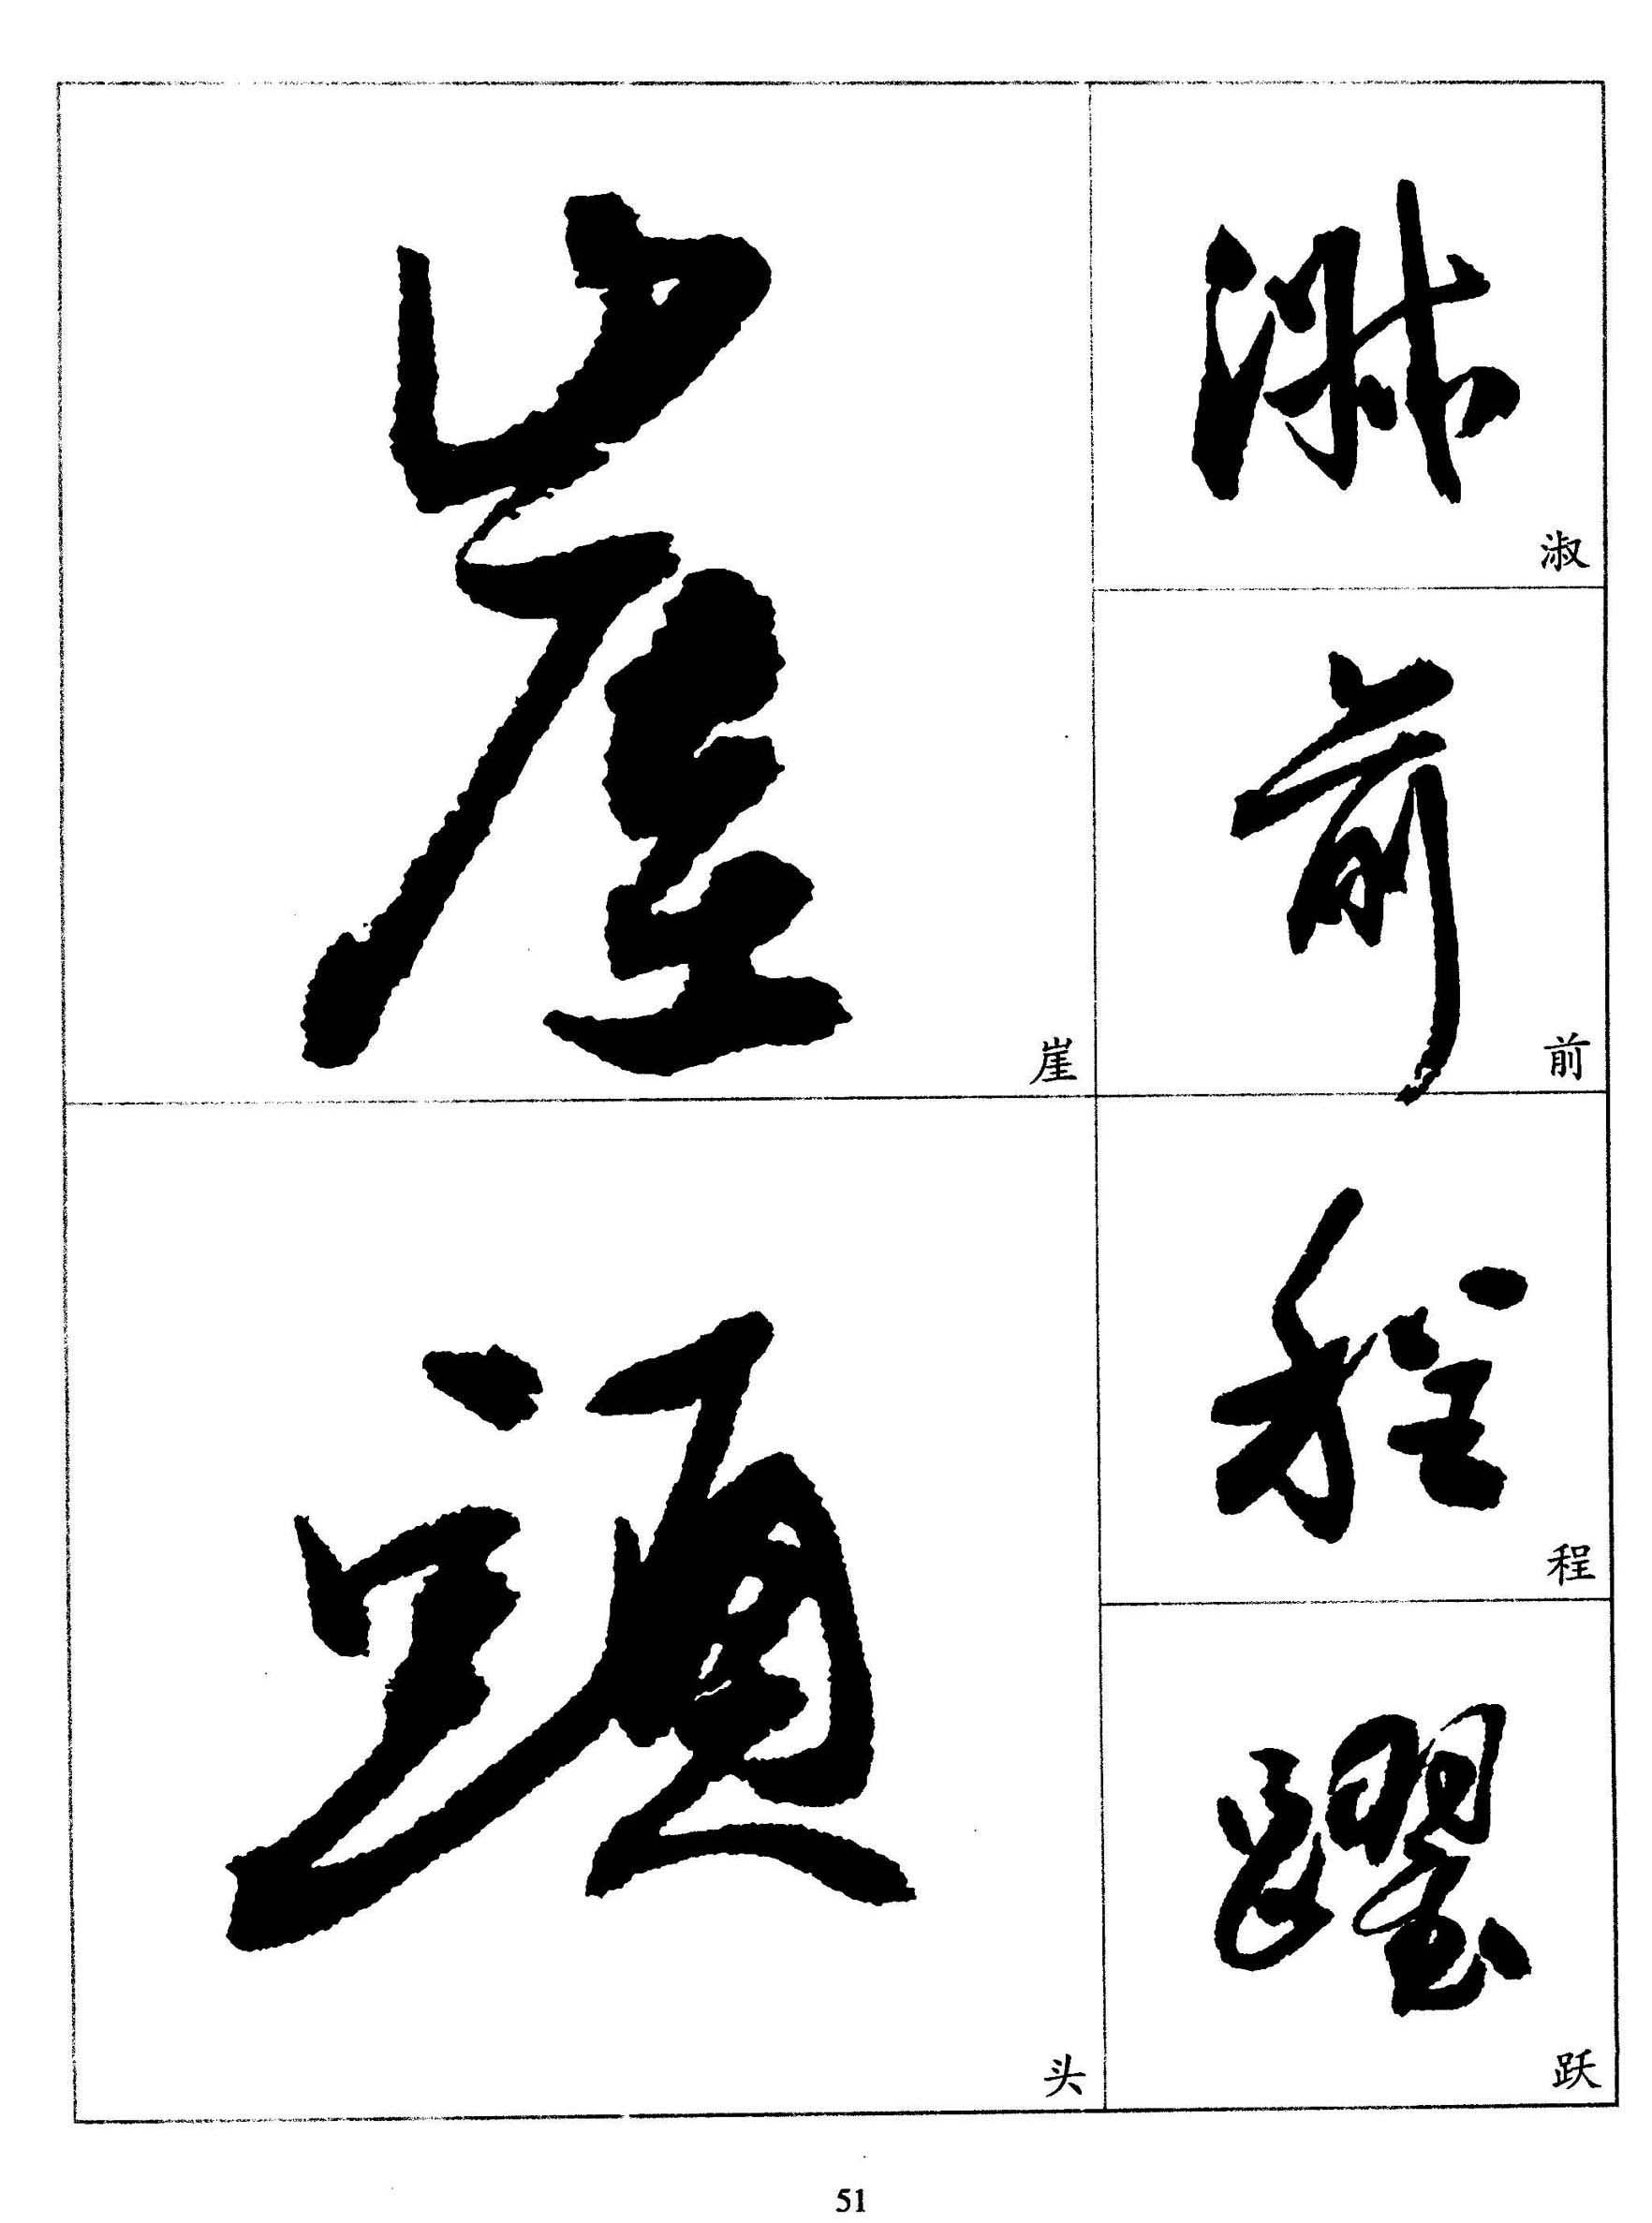 崖
崖
頭
头
淑
淑
前
前
程
程
躍
跃
51